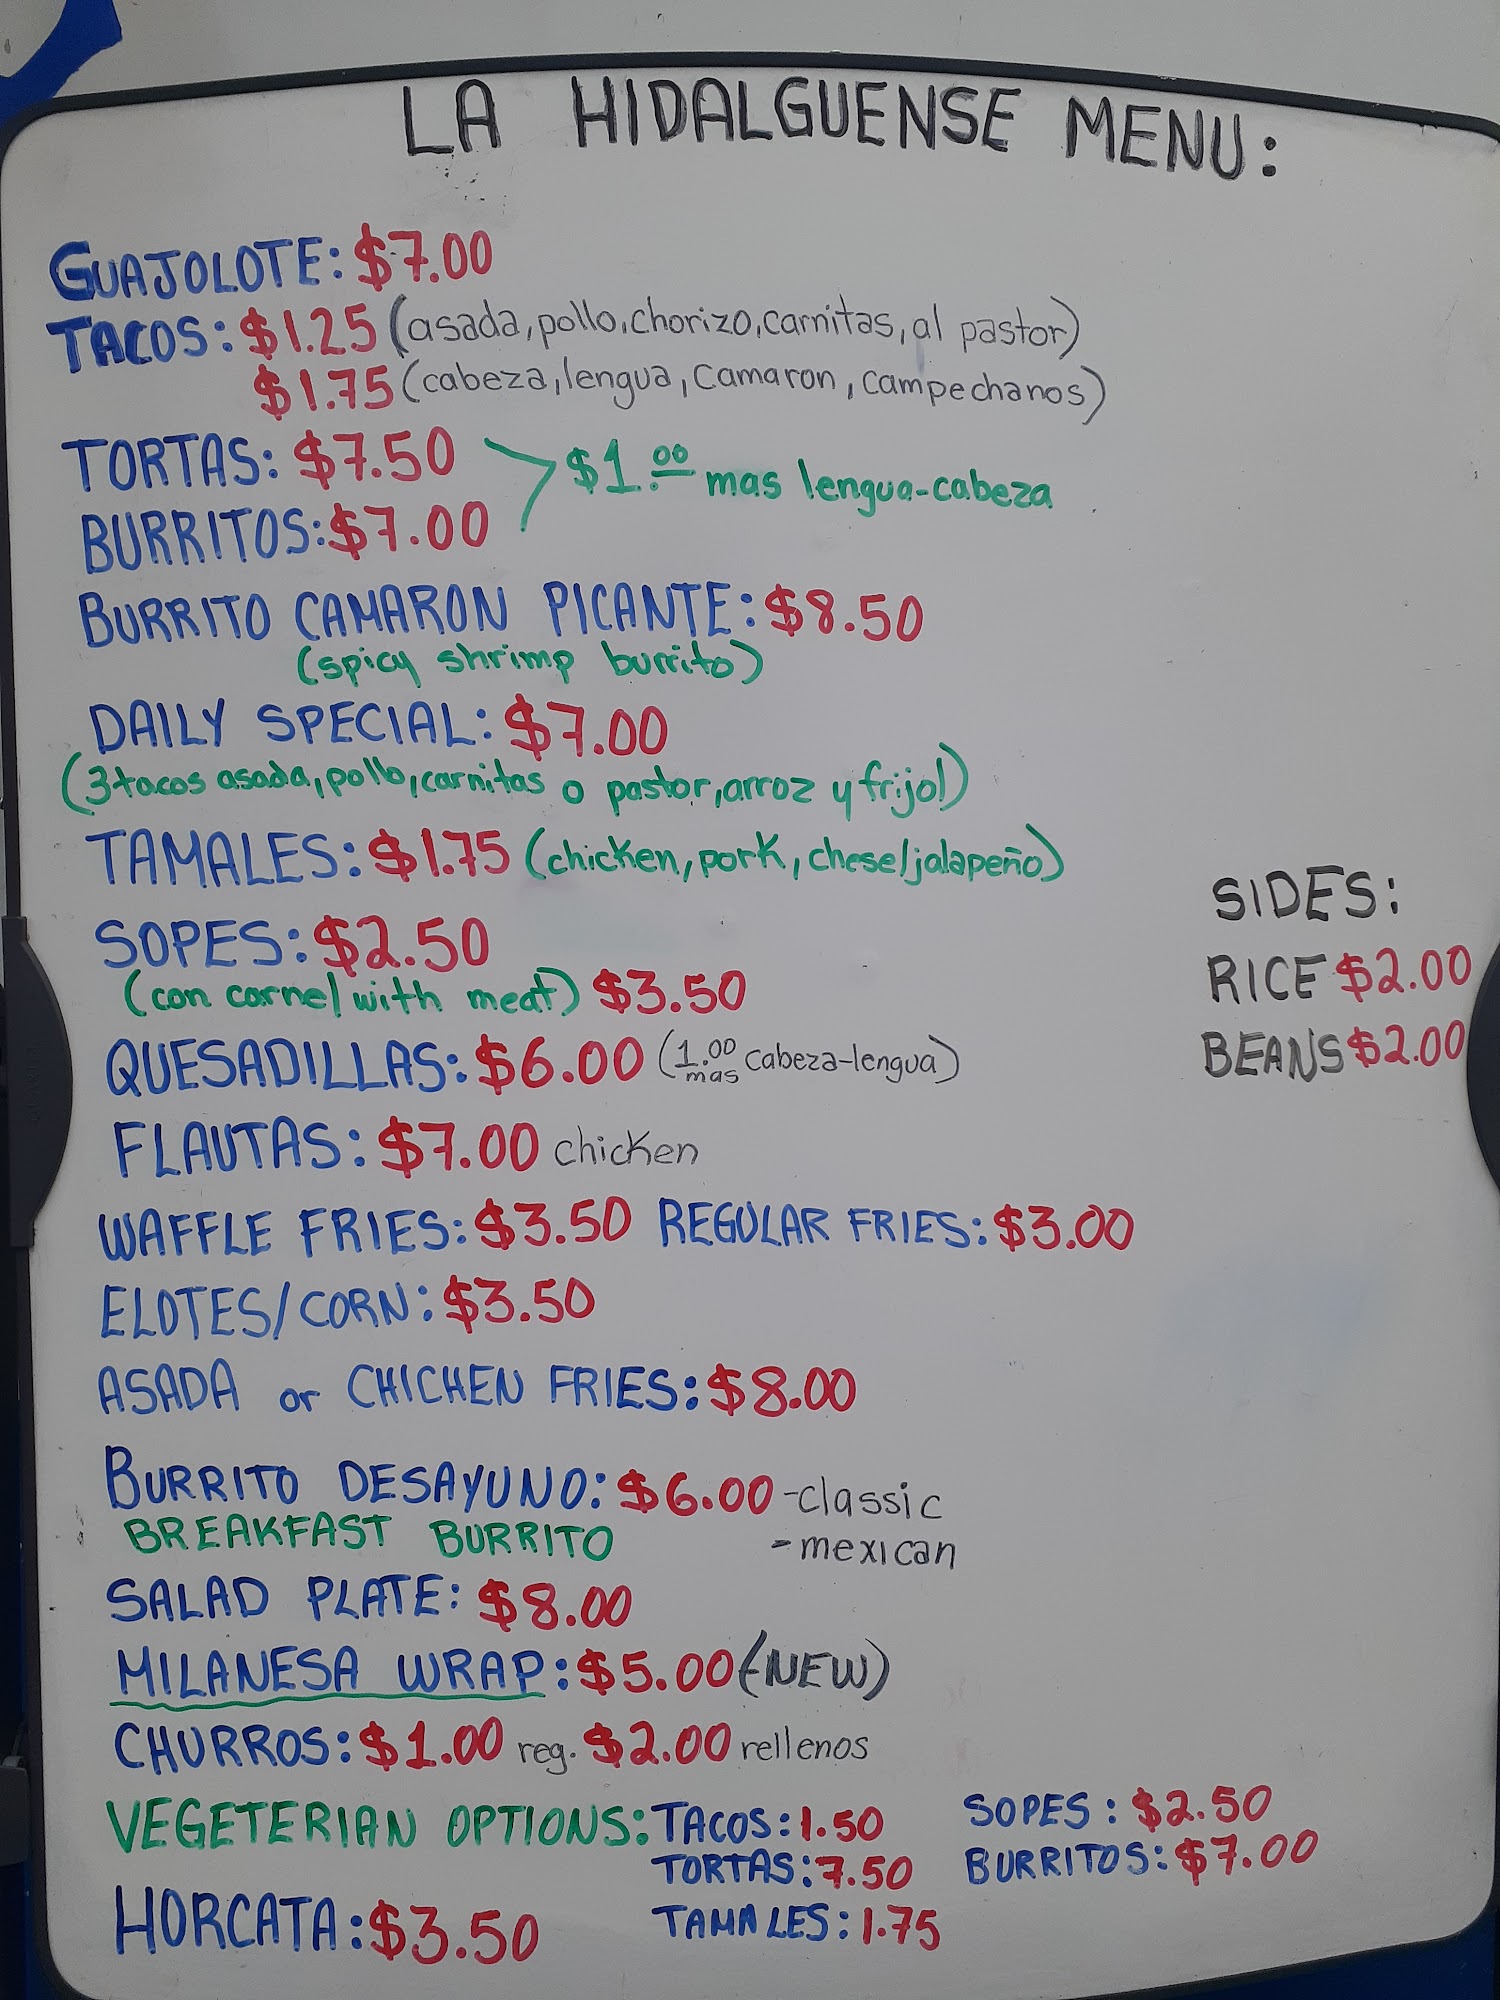 LA HIDALGUENSE MENU:
GUAJOLOTE: $7.00
TACOS: $1.25 (asada, pollo, chorizo, carnitas, al pastor)
$1.75 (cabeza, lengua, camaron, campechanos)
TORTAS: $7.50
$1.00 mas lengua-cabeza
BURRITOS: $7.00
BURRITO CAMARON PICANTE: $8.50
(spicy shrimp burrito)
DAILY SPECIAL: $7.00
(3 tacos asada, pollo, carnitas o pastor, arroz y frijol)
TAMALES: $1.75 (chicken, pork, chese/jalapeño)
SOPES: $2.50
(con carne/with meat) $3.50
QUESADILLAS: $6.00 (1.00 mas cabeza-lengua)
FLAUTAS: $7.00 chicken
WAFFLE FRIES: $3.50 REGULAR FRIES: $3.00
ELOTES/CORN: $3.50
ASADA or CHICHEN FRIES: $8.00
BURRITO DESAYUNO: $6.00 -classic
BREAKFAST BURRITO -mexican
SALAD PLATE: $8.00
MILANESA WRAP: $5.00 (NEW)
CHURROS: $1.00 reg. $2.00 rellenos
VEGETERIAN OPTIONS: TACOS: 1.50 SOPES: $2.50
TORTAS: 7.50 BURRITOS: $7.00
TAMALES: 1.75
HORCATA: $3.50
SIDES:
RICE $2.00
BEANS $2.00